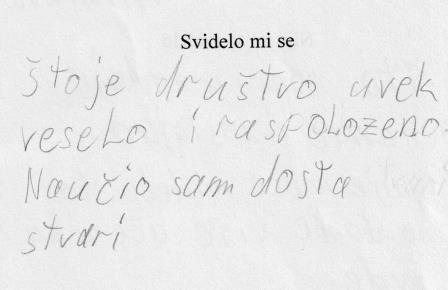 Svidelo mi se
što je društvo uvek
veselo i raspOLOZENO.
Naučio sam dosta
stvari